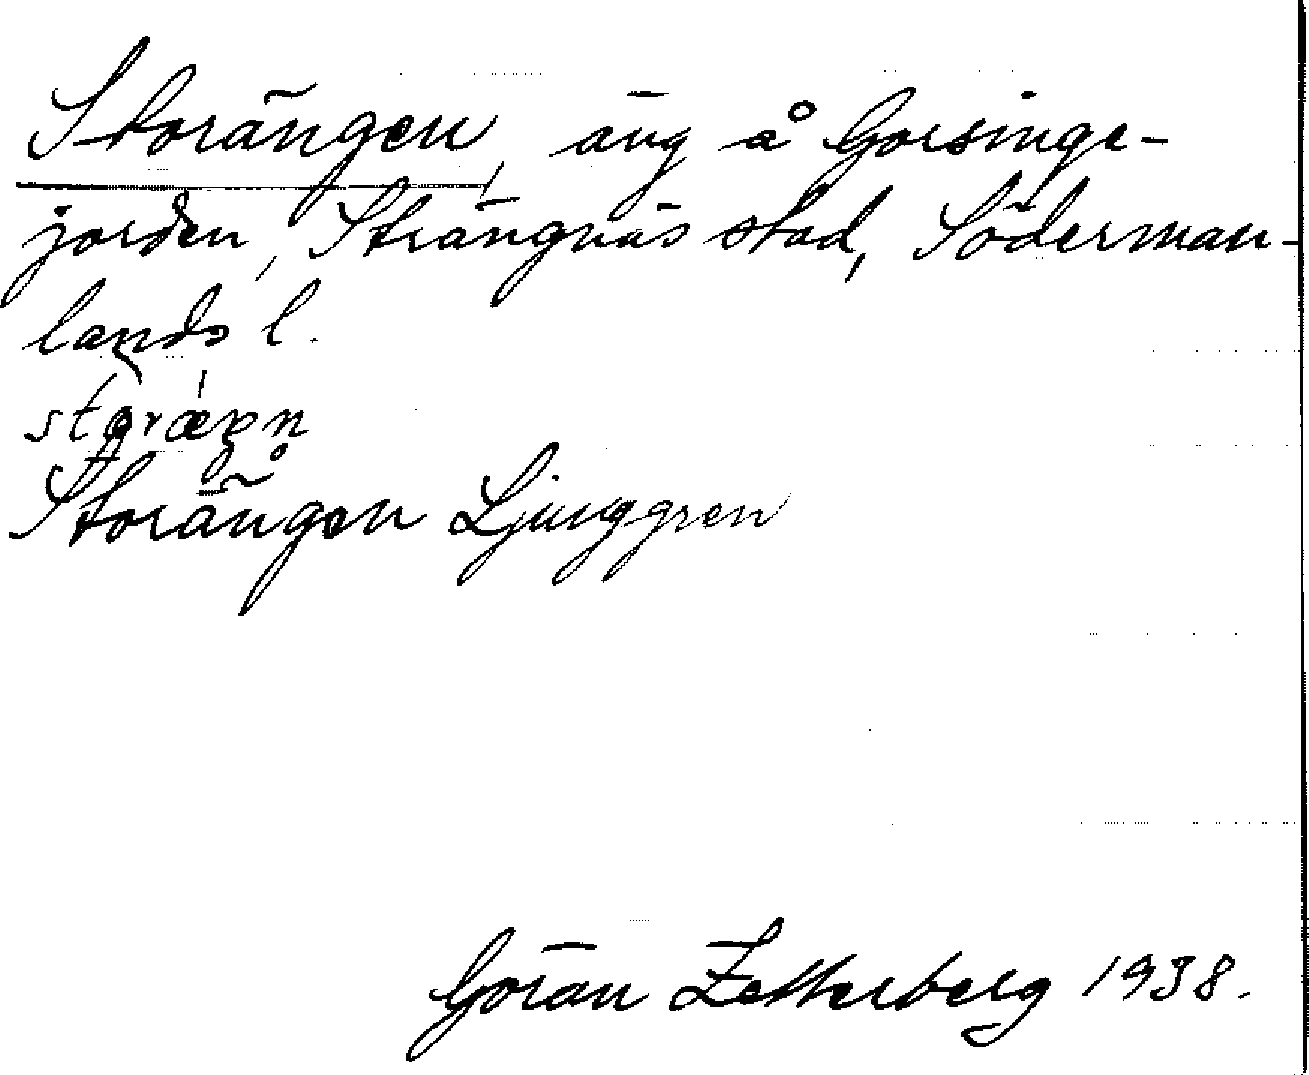 Storängen, äng å Gorsinge-
jorden, Strängnäs stad, Söderman-
lands l.
Storängen Ljunggren
Göran Zetterberg 1938.